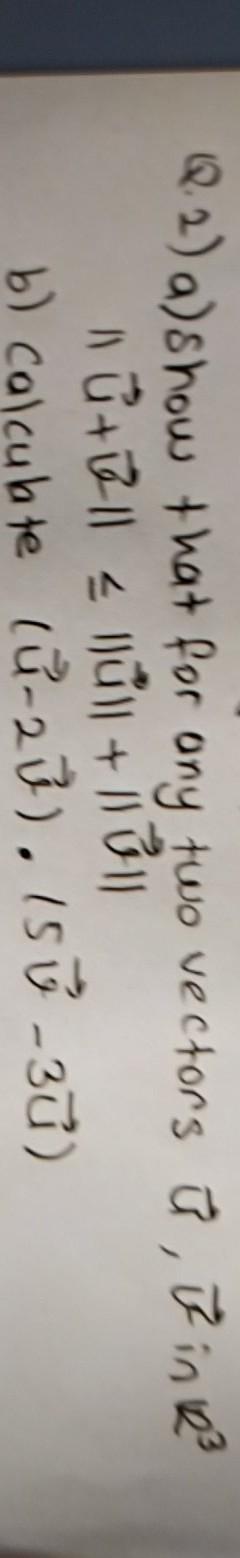 Q.2) a) show that for any two vectors u⃗, v⃗ in ℝ³
‖u⃗+v⃗‖ ≤ ‖u⃗‖ + ‖v⃗‖
b) calculate (u⃗-2v⃗) • (5v⃗ -3u⃗)